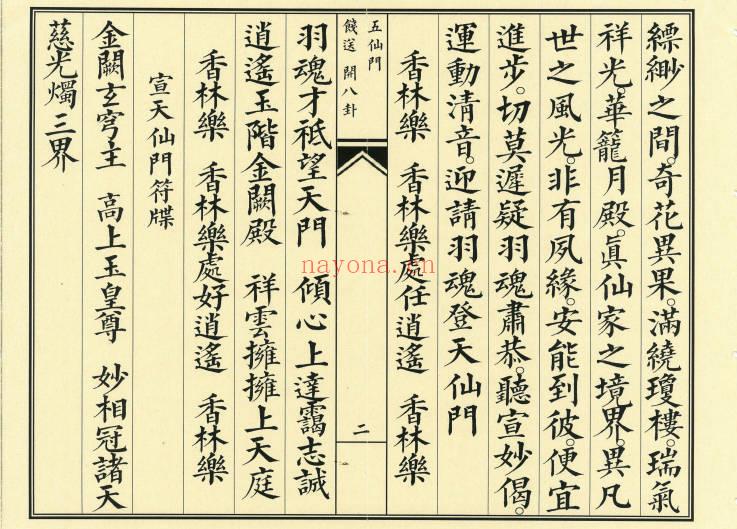 縹緲之間。奇花異果。滿繞瓊樓。瑞氣
祥光。華籠月殿。眞仙家之境界。異凡
世之風光。非有夙緣。安能到彼。便宜
進步。切莫遲疑羽魂肅恭。聽宣妙偈。
運動清音。迎請羽魂登天仙門
香林樂　香林樂處任逍遙　香林樂
五仙門
餞送 開八卦
二
羽魂才祇望天門　傾心上達靄志誠
逍遙玉階金闕殿　祥雲擁擁上天庭
香林樂　香林樂處好逍遙　香林樂
宣天仙門符牒
金闕玄穹主　高上玉皇尊　妙相冠諸天
慈光燭三界
nayona.cn